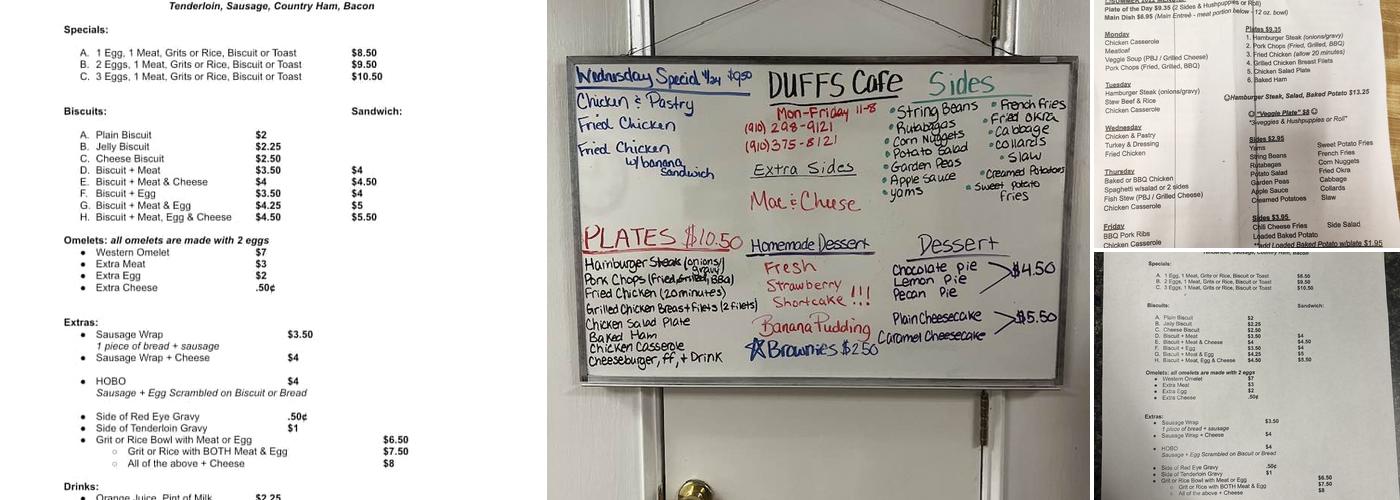 Tenderloin, Sausage, Country Ham, Bacon
Specials:
A. 1 Egg, 1 Meat, Grits or Rice, Biscuit or Toast $8.50
B. 2 Eggs, 1 Meat, Grits or Rice, Biscuit or Toast $9.50
C. 3 Eggs, 1 Meat, Grits or Rice, Biscuit or Toast $10.50
Biscuits: Sandwich:
A. Plain Biscuit $2
B. Jelly Biscuit $2.25
C. Cheese Biscuit $2.50
D. Biscuit + Meat $3.50 $4
E. Biscuit + Meat & Cheese $4 $4.50
F. Biscuit + Egg $3.50 $4
G. Biscuit + Meat & Egg $4.25 $5
H. Biscuit + Meat, Egg & Cheese $4.50 $5.50
Omelets: all omelets are made with 2 eggs
● Western Omelet $7
● Extra Meat $3
● Extra Egg $2
● Extra Cheese .50¢
Extras:
● Sausage Wrap $3.50
1 piece of bread + sausage
● Sausage Wrap + Cheese $4
● HOBO $4
Sausage + Egg Scrambled on Biscuit or Bread
● Side of Red Eye Gravy .50¢
● Side of Tenderloin Gravy $1
● Grit or Rice Bowl with Meat or Egg $6.50
○ Grit or Rice with BOTH Meat & Egg $7.50
○ All of the above + Cheese $8
Drinks:
● Orange Juice, Pint of Milk $2.25
Wednesday Special 4/24 $9.50
Chicken & Pastry
Fried Chicken
Fried Chicken
w/banana
Sandwich
DUFFS Cafe
Mon-Friday 11-8
(910) 298-9121
(910) 375-8121
Extra Sides
Mac & Cheese
Sides
• String Beans
• Rutabagas
• Corn Nuggets
• Potato Salad
• Garden Peas
• Apple Sauce
• yams
• French Fries
• Fried Okra
• Cabbage
• Collards
• Slaw
• Creamed Potatoes
• Sweet Potato
fries
PLATES $10.50
Hamburger Steak (onions/
gravy)
Pork Chops (Fried, Grilled, BBQ)
Fried Chicken (20 minutes)
Grilled Chicken Breast Filets (2 filets)
Chicken Salad Plate
Baked Ham
Chicken Casserole
Cheeseburger, ff, + Drink
Homemade Dessert
Fresh
Strawberry
Shortcake !!!
Banana Pudding
☆ Brownies $2.50
Dessert
Chocolate pie
Lemon Pie
Pecan Pie
$4.50
Plain Cheesecake
Caramel Cheesecake
$5.50
Plate of the Day $9.35 (2 Sides & Hushpuppies or Roll)
Main Dish $6.95 (Main Entreé - meat portion below - 12 oz. bowl)
Monday
Chicken Casserole
Meatloaf
Veggie Soup (PBJ / Grilled Cheese)
Pork Chops (Fried, Grilled, BBQ)
Tuesday
Hamburger Steak (onions/gravy)
Stew Beef & Rice
Chicken Casserole
Wednesday
Chicken & Pastry
Turkey & Dressing
Fried Chicken
Thursday
Baked or BBQ Chicken
Spaghetti w/salad or 2 sides
Fish Stew (PBJ / Grilled Cheese)
Chicken Casserole
Friday
BBQ Pork Ribs
Chicken Casserole
Plates $9.35
1. Hamburger Steak (onions/gravy)
2. Pork Chops (Fried, Grilled, BBQ)
3. Fried Chicken (allow 20 minutes)
4. Grilled Chicken Breast Filets
5. Chicken Salad Plate
6. Baked Ham
☺Hamburger Steak, Salad, Baked Potato $13.25
☺ "Veggie Plate" $8 ☺
"3 veggies & Hushpuppies or Roll"
Sides $2.95
Yams
String Beans
Rutabagas
Potato Salad
Garden Peas
Apple Sauce
Creamed Potatoes
Sweet Potato Fries
French Fries
Corn Nuggets
Fried Okra
Cabbage
Collards
Slaw
Sides $3.95
Chili Cheese Fries Side Salad
Loaded Baked Potato
*add Loaded Baked Potato w/plate $1.95
Tenderloin, Sausage, Country Ham, Bacon
Specials:
A. 1 Egg, 1 Meat, Grits or Rice, Biscuit or Toast $8.50
B. 2 Eggs, 1 Meat, Grits or Rice, Biscuit or Toast $9.50
C. 3 Eggs, 1 Meat, Grits or Rice, Biscuit or Toast $10.50
Biscuits: Sandwich:
A. Plain Biscuit $2
B. Jelly Biscuit $2.25
C. Cheese Biscuit $2.50
D. Biscuit + Meat $3.50 $4
E. Biscuit + Meat & Cheese $4 $4.50
F. Biscuit + Egg $3.50 $4
G. Biscuit + Meat & Egg $4.25 $5
H. Biscuit + Meat, Egg & Cheese $4.50 $5.50
Omelets: all omelets are made with 2 eggs
● Western Omelet $7
● Extra Meat $3
● Extra Egg $2
● Extra Cheese .50¢
Extras:
● Sausage Wrap $3.50
1 piece of bread + sausage
● Sausage Wrap + Cheese $4
● HOBO $4
Sausage + Egg Scrambled on Biscuit or Bread
● Side of Red Eye Gravy .50¢
● Side of Tenderloin Gravy $1
● Grit or Rice Bowl with Meat or Egg $6.50
○ Grit or Rice with BOTH Meat & Egg $7.50
○ All of the above + Cheese $8